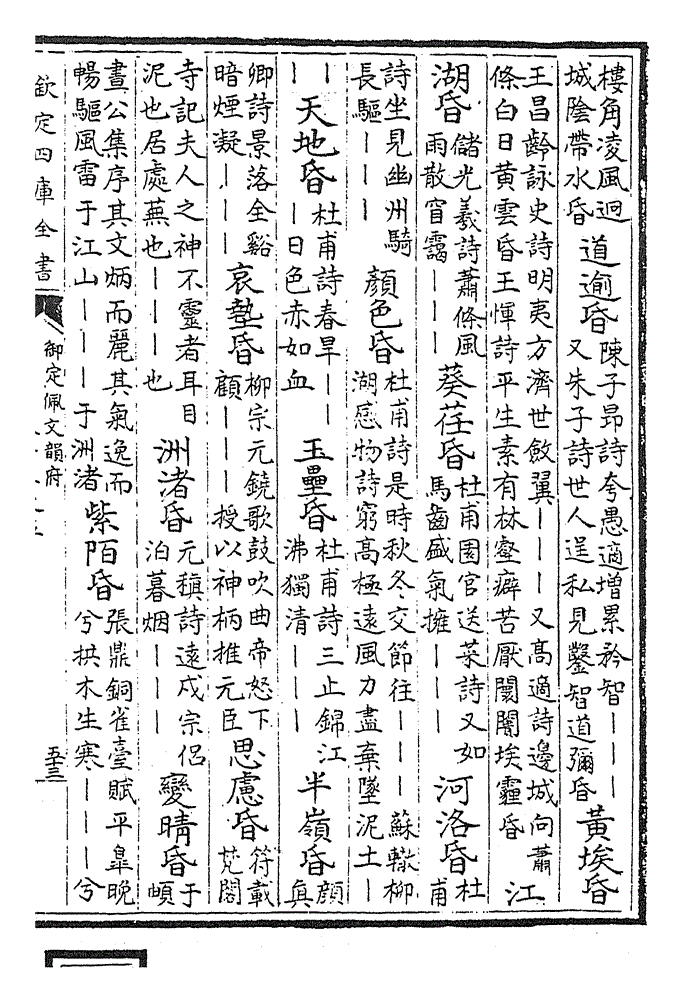 樓角凌風迥
城陰帶水昏
道逾昏
陳子昂詩夸愚適增累矜智｜｜｜
又朱子詩世人逞私見鑿智道彌昏
黃埃昏
王昌齡詠史詩明夷方濟世斂翼｜｜｜又髙適詩邊城向蕭
條白日黃雲昏王惲詩平生素有林壑癖苦厭闤闠埃霾昏
江
湖昏
儲光羲詩蕭條風
雨散窅靄｜｜｜
葵荏昏
杜甫園官送菜詩又如
馬齒盛氣擁｜｜｜
河洛昏
杜
甫
詩坐見幽州騎
長驅｜｜｜
顏色昏
杜甫詩是時秋冬交節往｜｜｜蘇轍柳
湖感物詩窮髙極遠風力盡棄墜泥土｜
｜
｜
天地昏
杜甫詩春旱｜｜
｜日色赤如血
玉壘昏
杜甫詩三止錦江
沸獨清｜｜｜
半嶺昏
顔
真
卿詩景落全谿
暗煙凝｜｜｜
哀墊昏
柳宗元鐃歌鼓吹曲帝怒下
顧｜｜｜授以神柄推元臣
思慮昏
符載
梵閣
寺記夫人之神不靈者耳目
泥也居處蕪也｜｜｜也
洲渚昏
元稹詩遠戍宗侣
泊暮烟｜｜｜
變晴昏
于
頔
晝公集序其文炳而麗其氣逸而
暢驅風雷于江山｜｜｜于洲渚
紫陌昏
張鼎銅雀臺賦平皐晚
兮拱木生寒｜｜｜兮
欽定四庫全書
御定佩文韻府
五三